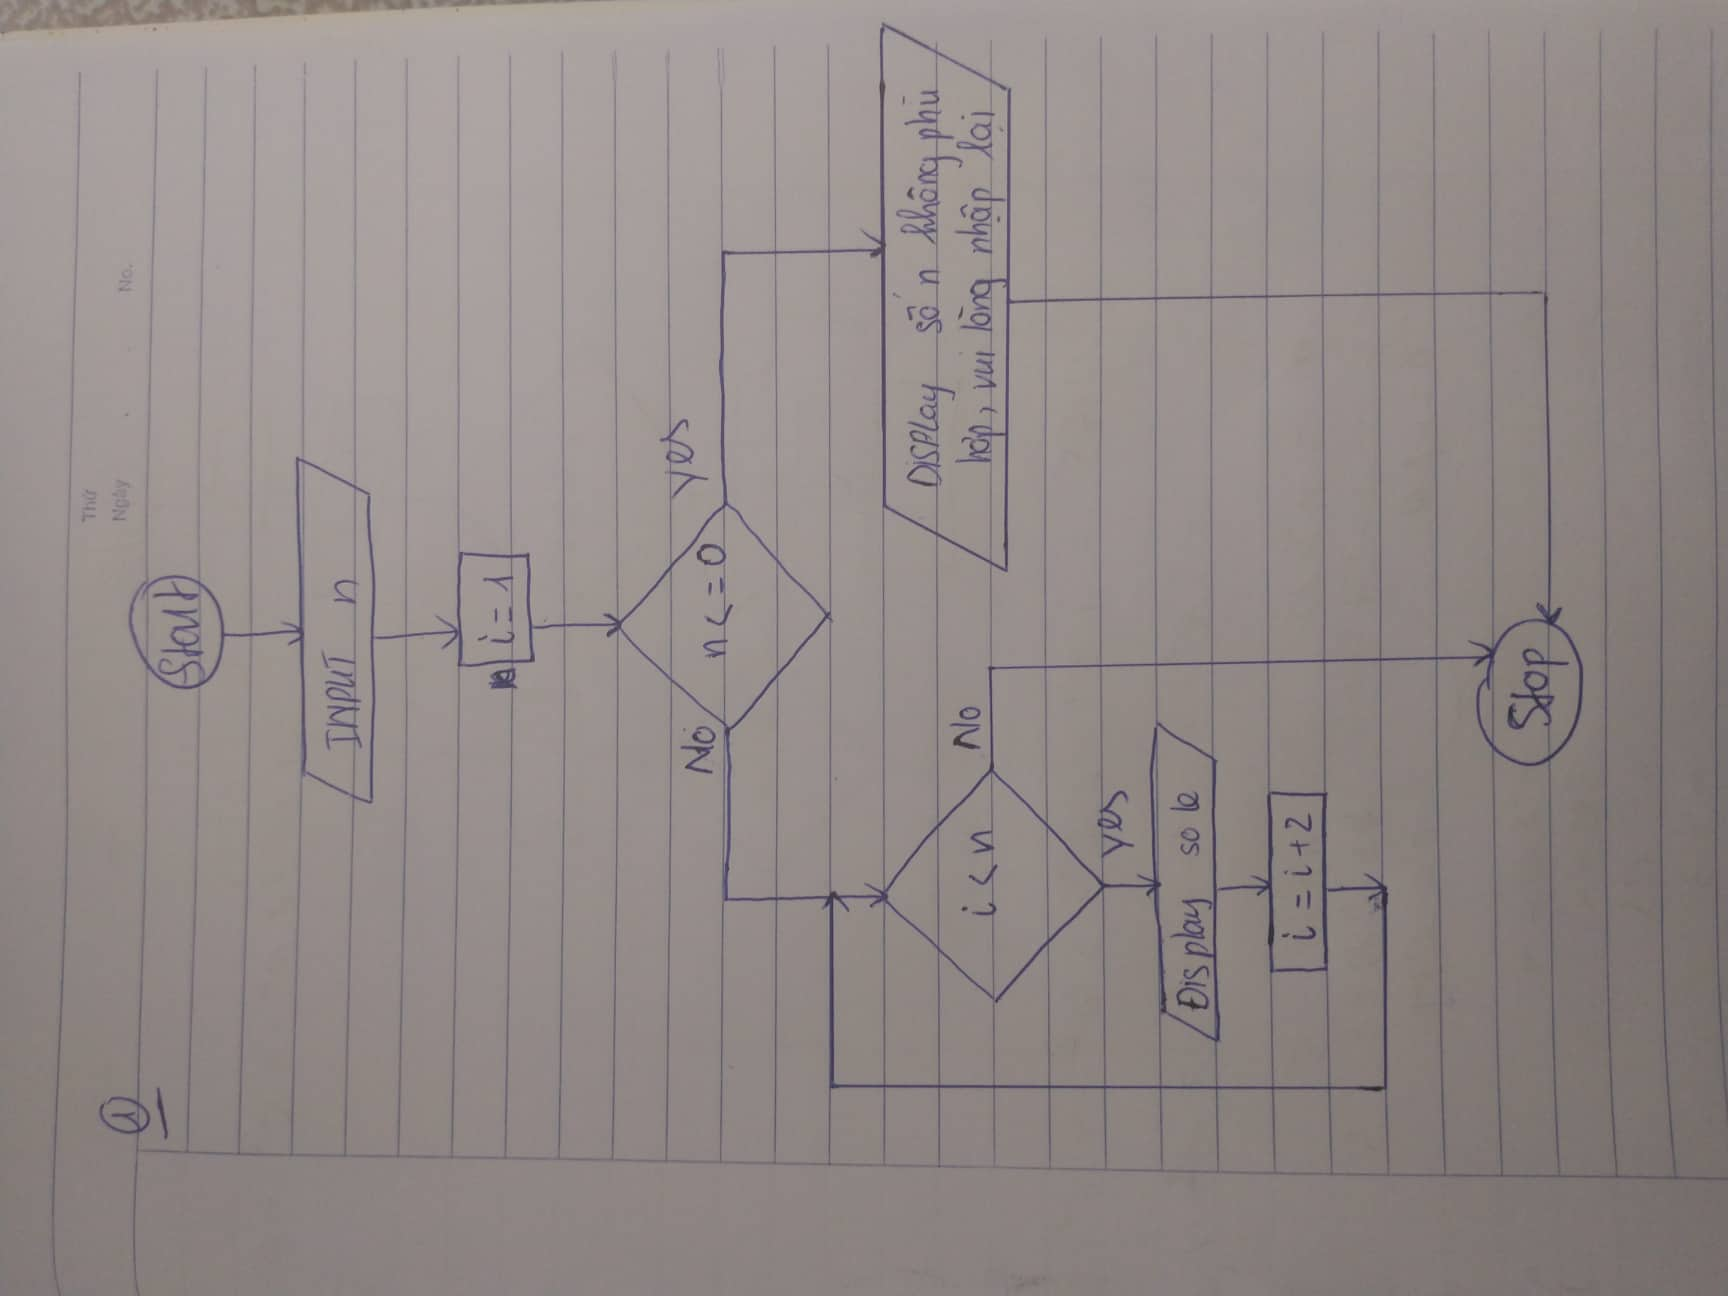 Thứ
Ngày . . No.
1
Start
INPUT n
i = 1
n <= 0
Yes
No
DISPlay số n không phù
hợp, vui lòng nhập lại
i < n
No
Yes
Display so le
i = i + 2
Stop